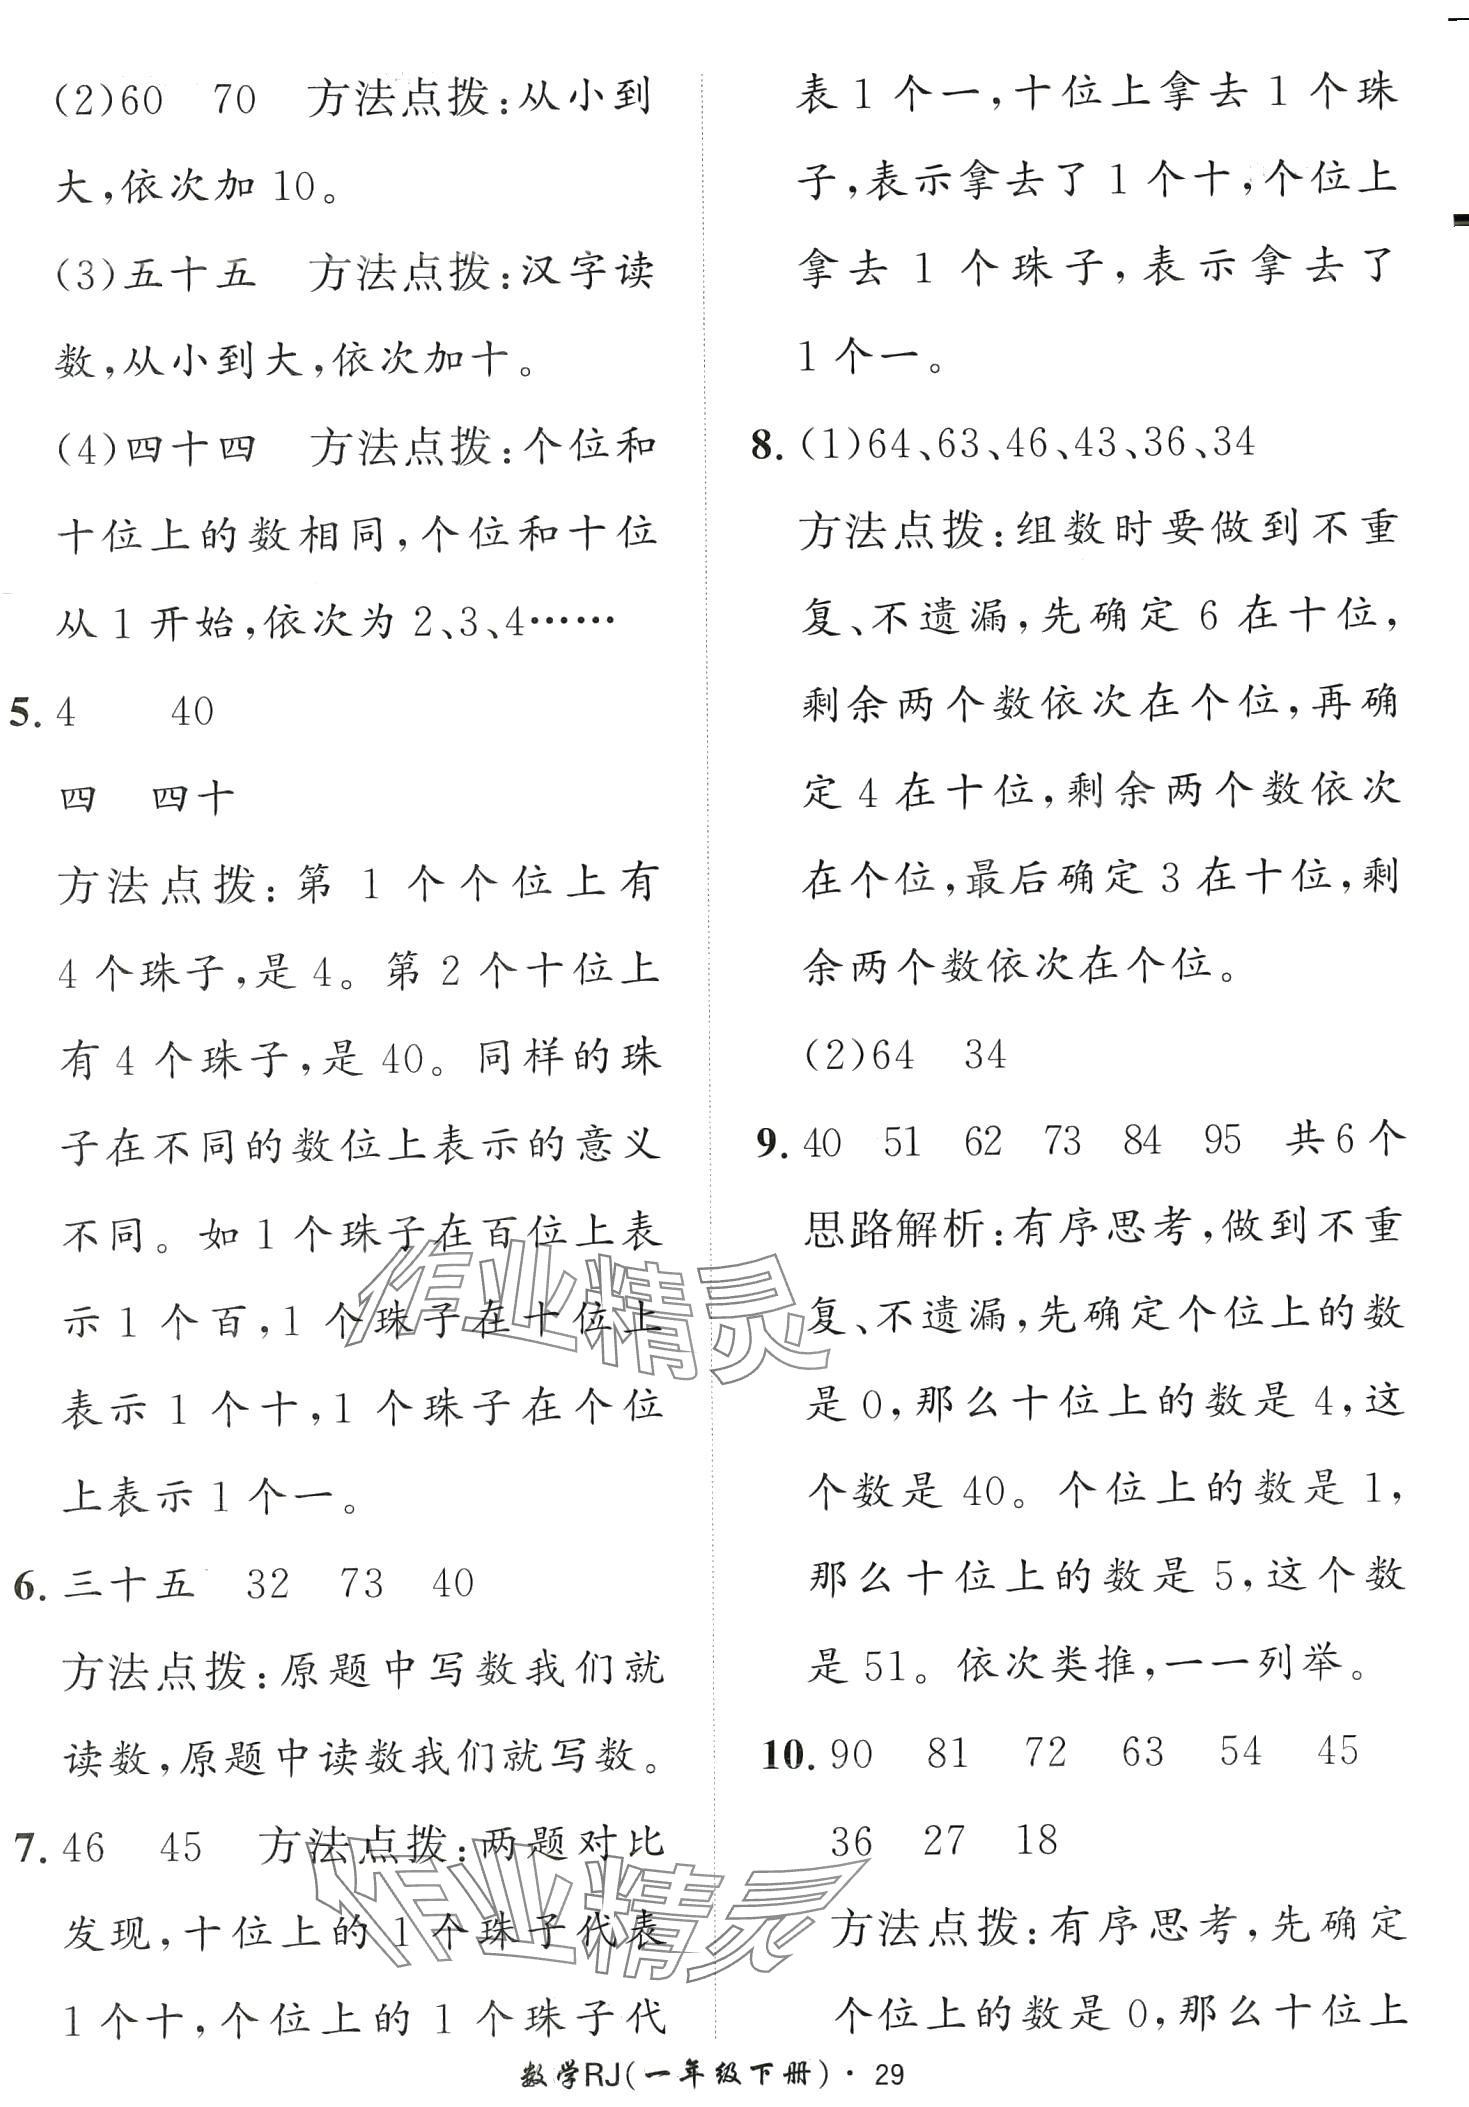 (2)60 70 方法点拨:从小到
大,依次加 10。
(3)五十五 方法点拨:汉字读
数,从小到大,依次加十。
(4)四十四 方法点拨:个位和
十位上的数相同,个位和十位
从 1 开始,依次为 2、3、4……
5. 4 40
四 四十
方法点拨:第 1 个个位上有
4 个珠子,是 4。第 2 个十位上
有 4 个珠子,是 40。同样的珠
子在不同的数位上表示的意义
不同。如 1 个珠子在百位上表
示 1 个百,1 个珠子在十位上
表示 1 个十,1 个珠子在个位
上表示 1 个一。
6. 三十五 32 73 40
方法点拨:原题中写数我们就
读数,原题中读数我们就写数。
7. 46 45 方法点拨:两题对比
发现,十位上的 1 个珠子代表
1 个十,个位上的 1 个珠子代
表 1 个一,十位上拿去 1 个珠
子,表示拿去了 1 个十,个位上
拿去 1 个珠子,表示拿去了
1 个一。
8. (1)64、63、46、43、36、34
方法点拨:组数时要做到不重
复、不遗漏,先确定 6 在十位,
剩余两个数依次在个位,再确
定 4 在十位,剩余两个数依次
在个位,最后确定 3 在十位,剩
余两个数依次在个位。
(2)64 34
9. 40 51 62 73 84 95 共 6 个
思路解析:有序思考,做到不重
复、不遗漏,先确定个位上的数
是 0,那么十位上的数是 4,这
个数是 40。个位上的数是 1,
那么十位上的数是 5,这个数
是 51。依次类推,一一列举。
10. 90 81 72 63 54 45
36 27 18
方法点拨:有序思考,先确定
个位上的数是 0,那么十位上
作业精灵
作业精灵
数学RJ(一年级下册)· 29